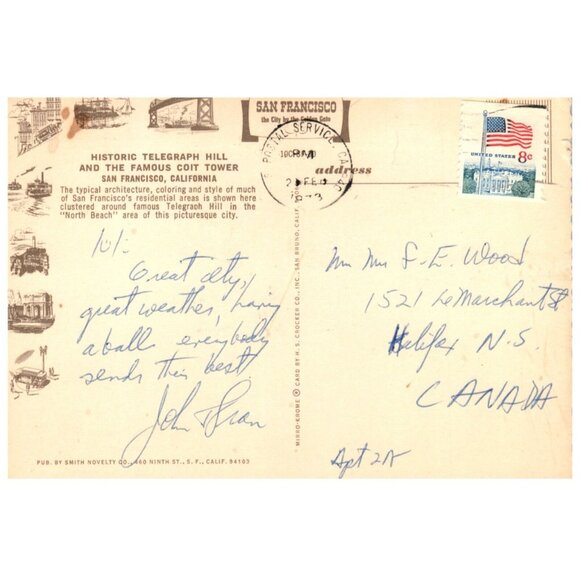 SAN FRANCISCO
the City by the Golden Gate
HISTORIC TELEGRAPH HILL
AND THE FAMOUS COIT TOWER
SAN FRANCISCO, CALIFORNIA
The typical architecture, coloring and style of much
of San Francisco's residential areas is shown here
clustered around famous Telegraph Hill in the
"North Beach" area of this picturesque city.
POSTAL SERVICE, CA
PM
FEB
address
UNITED STATES 8c
Hi-
Great city,
great weather, having
a ball everybody
sends their best
John & Fran
MIRRO-KROME ® CARD BY H. S. CROCKER CO., INC., SAN BRUNO, CALIF.
PUB. BY SMITH NOVELTY CO., 460 NINTH ST., S. F., CALIF. 94103
Mr Mrs S. E. Wood
1521 LeMarchant St
Halifax N.S.
CANADA
Apt 2A